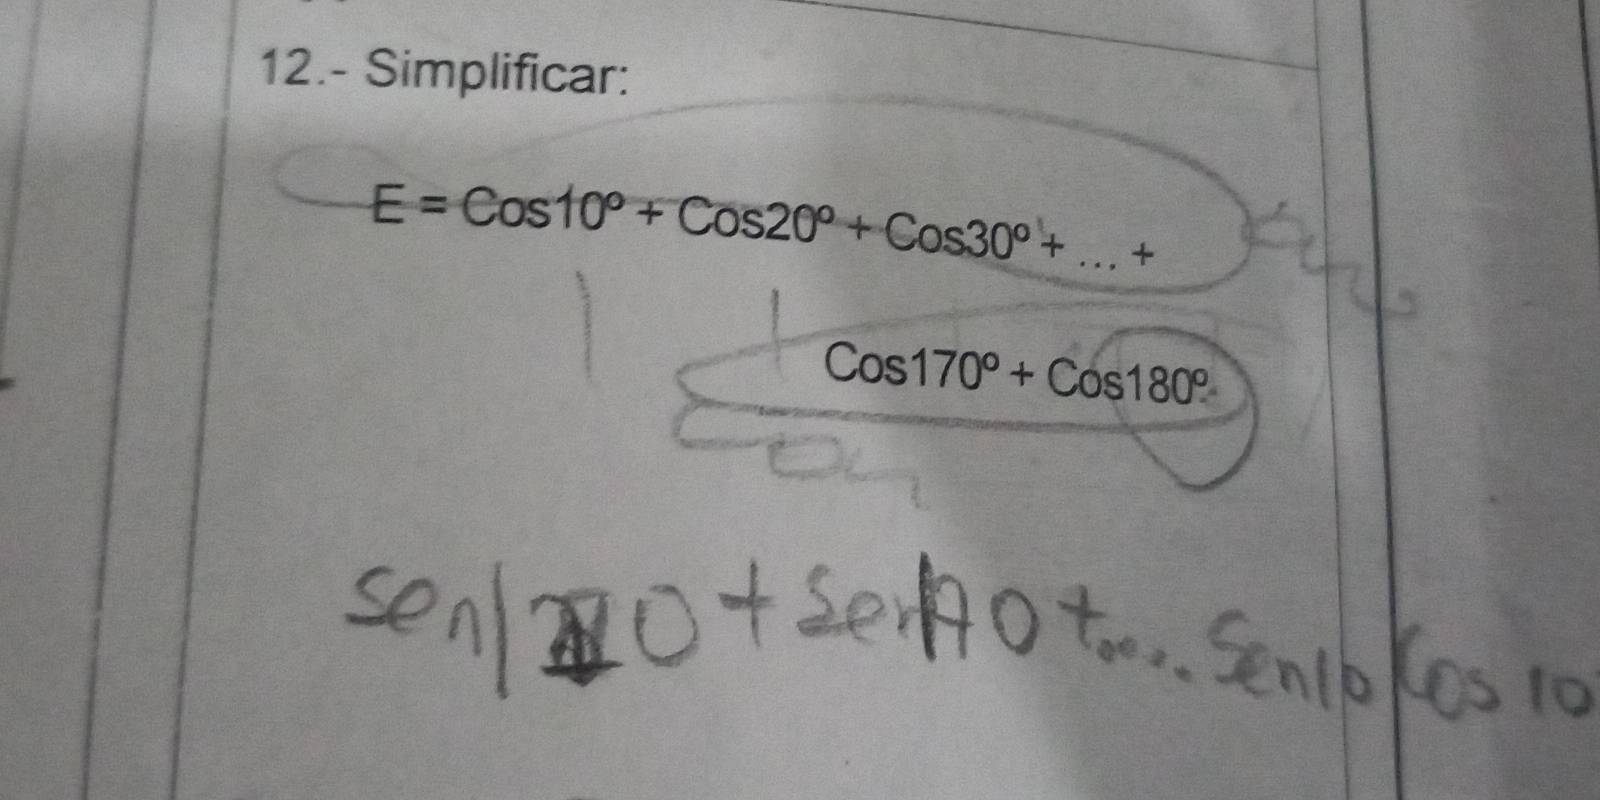 12.- Simplificar:
E = Cos10º + Cos20º + Cos30º + ... +
Cos170º + Cos180º
sen 0 + sen 0 + .... Sen10 Cos 10